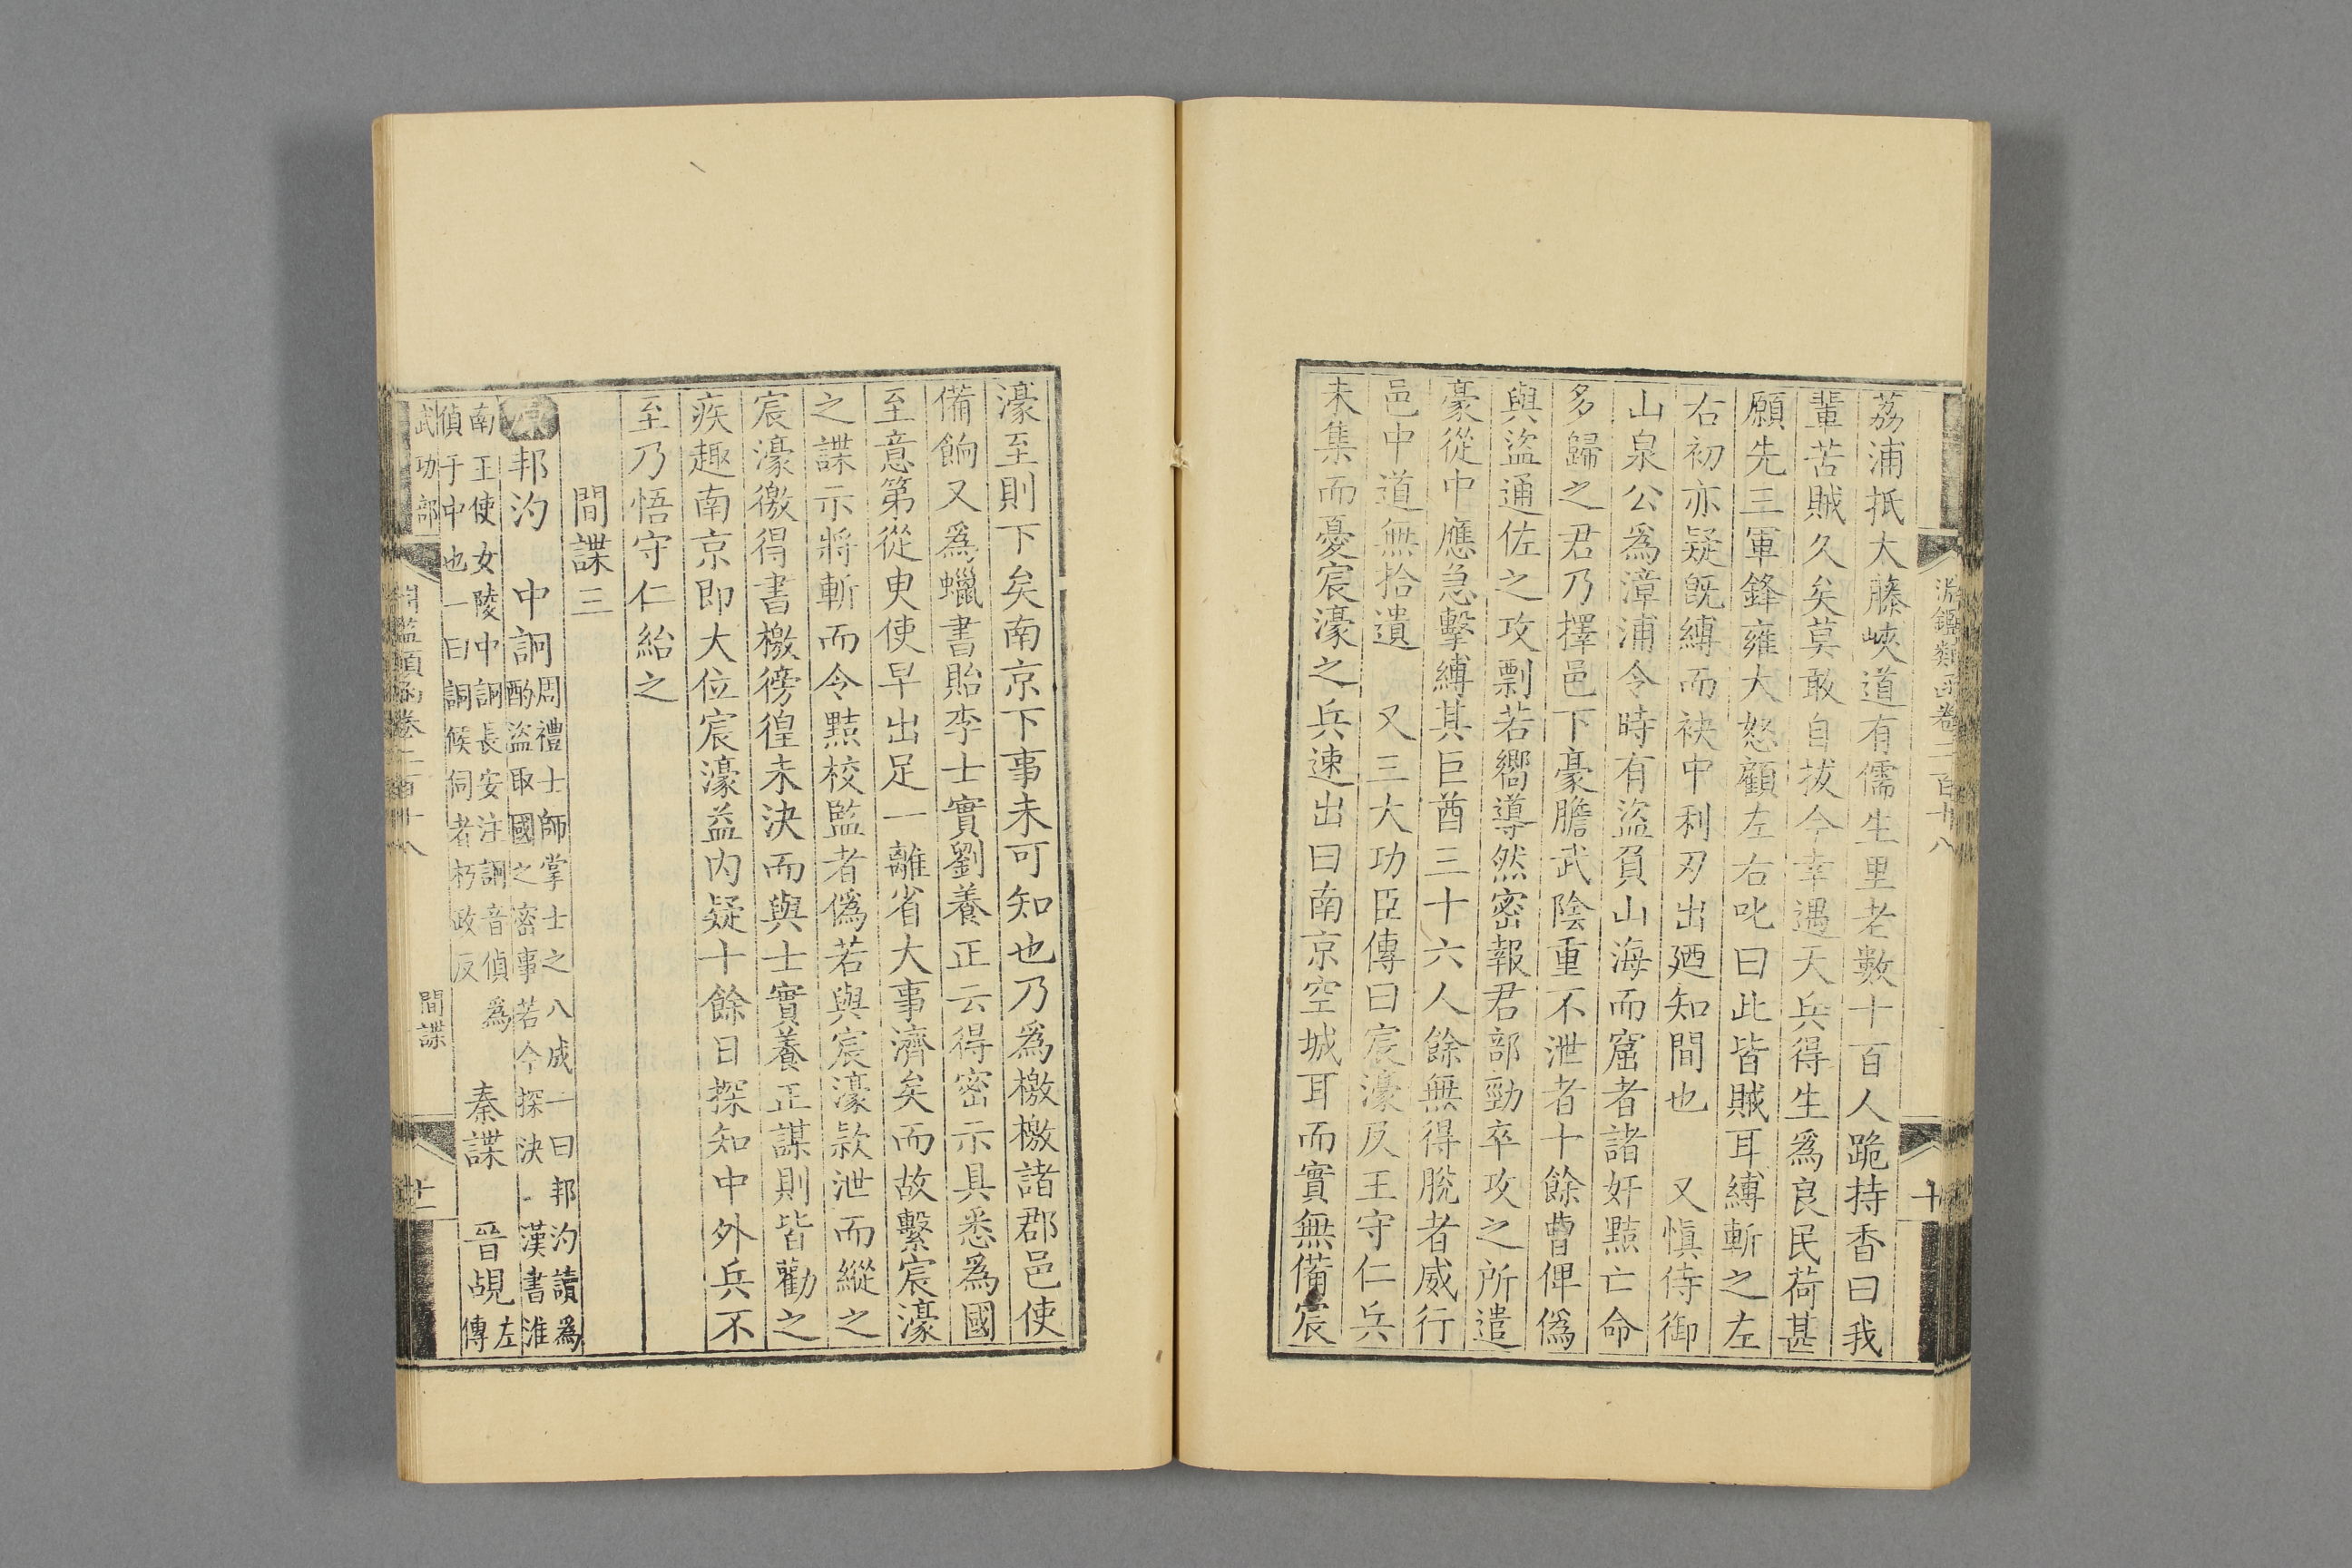 淵鑑類函卷二百十八
十
荔浦抵大藤峽道有儒生里老數十百人跪持香曰我
輩苦賊久矣莫敢自拔今幸遇天兵得生爲良民荷甚
願先三軍鋒雍大怒顧左右叱曰此皆賊耳縛斬之左
右初亦疑旣縛而袂中利刃出廼知間也　又愼侍御
山泉公爲漳浦令時有盜負山海而窟者諸奸黠亡命
多歸之君乃擇邑下豪膽武陰重不泄者十餘曹俾僞
與盜通佐之攻剽若嚮導然密報君部勁卒攻之所遣
豪從中應急擊縛其巨酋三十六人餘無得脫者威行
邑中道無拾遺　又三大功臣傳曰宸濠反王守仁兵
未集而憂宸濠之兵速出曰南京空城耳而實無備宸
濠至則下矣南京下事未可知也乃爲檄檄諸郡邑使
備餉又爲蠟書貽李士實劉養正云得密示具悉爲國
至意第從臾使早出足一離省大事濟矣而故繫宸濠
之諜示將斬而令黠校監者僞若與宸濠欵泄而縱之
宸濠徼得書檄徬徨未決而與士實養正謀則皆勸之
疾趣南京即大位宸濠益内疑十餘日探知中外兵不
至乃悟守仁紿之
間諜三
原
邦汋　中詗
周禮士師掌士之八成一曰邦汋讀爲
酌盜取國之密事若今探決　漢書淮
南王使女陵中詗長安注詗音偵爲
偵于中也一曰詗候伺者朽政反
秦諜　晉覘
左
傳
武功部
淵鑑類函卷二百十八
間諜
十一